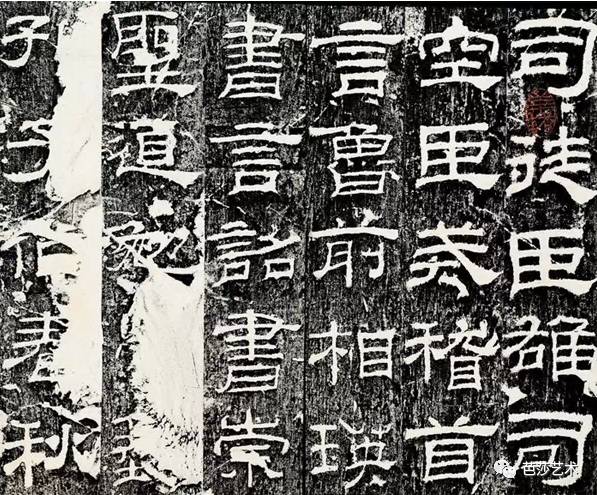 司徒臣雄司
空臣戒稽首
言魯前相瑛
書言詔書崇
聖道勉
子作春秋
芭莎艺术